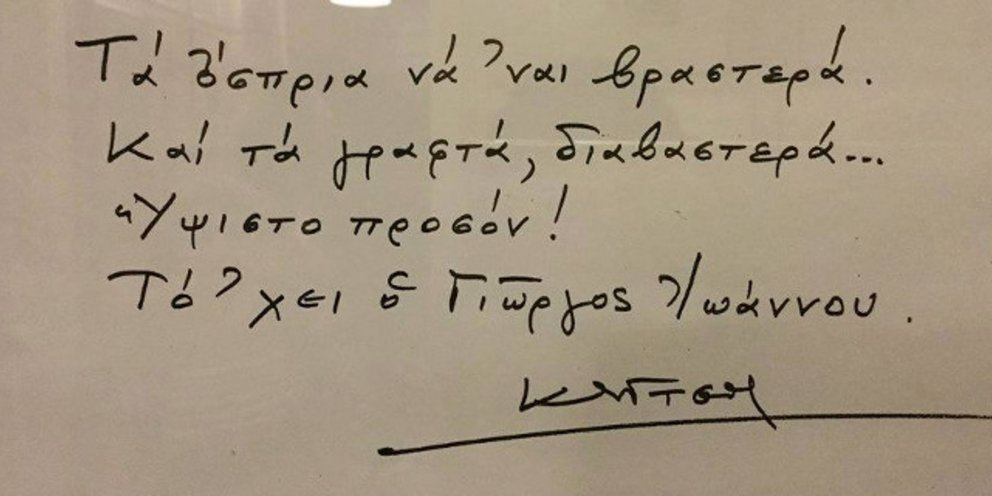 Τά ὄσπρια νά ᾿ναι βραστερά.
Καί τά γραφτά, διαβαστερά...
Ὕψιστο προσόν!
Τό ᾿χει ὁ Γιῶργος Ἰωάννου.